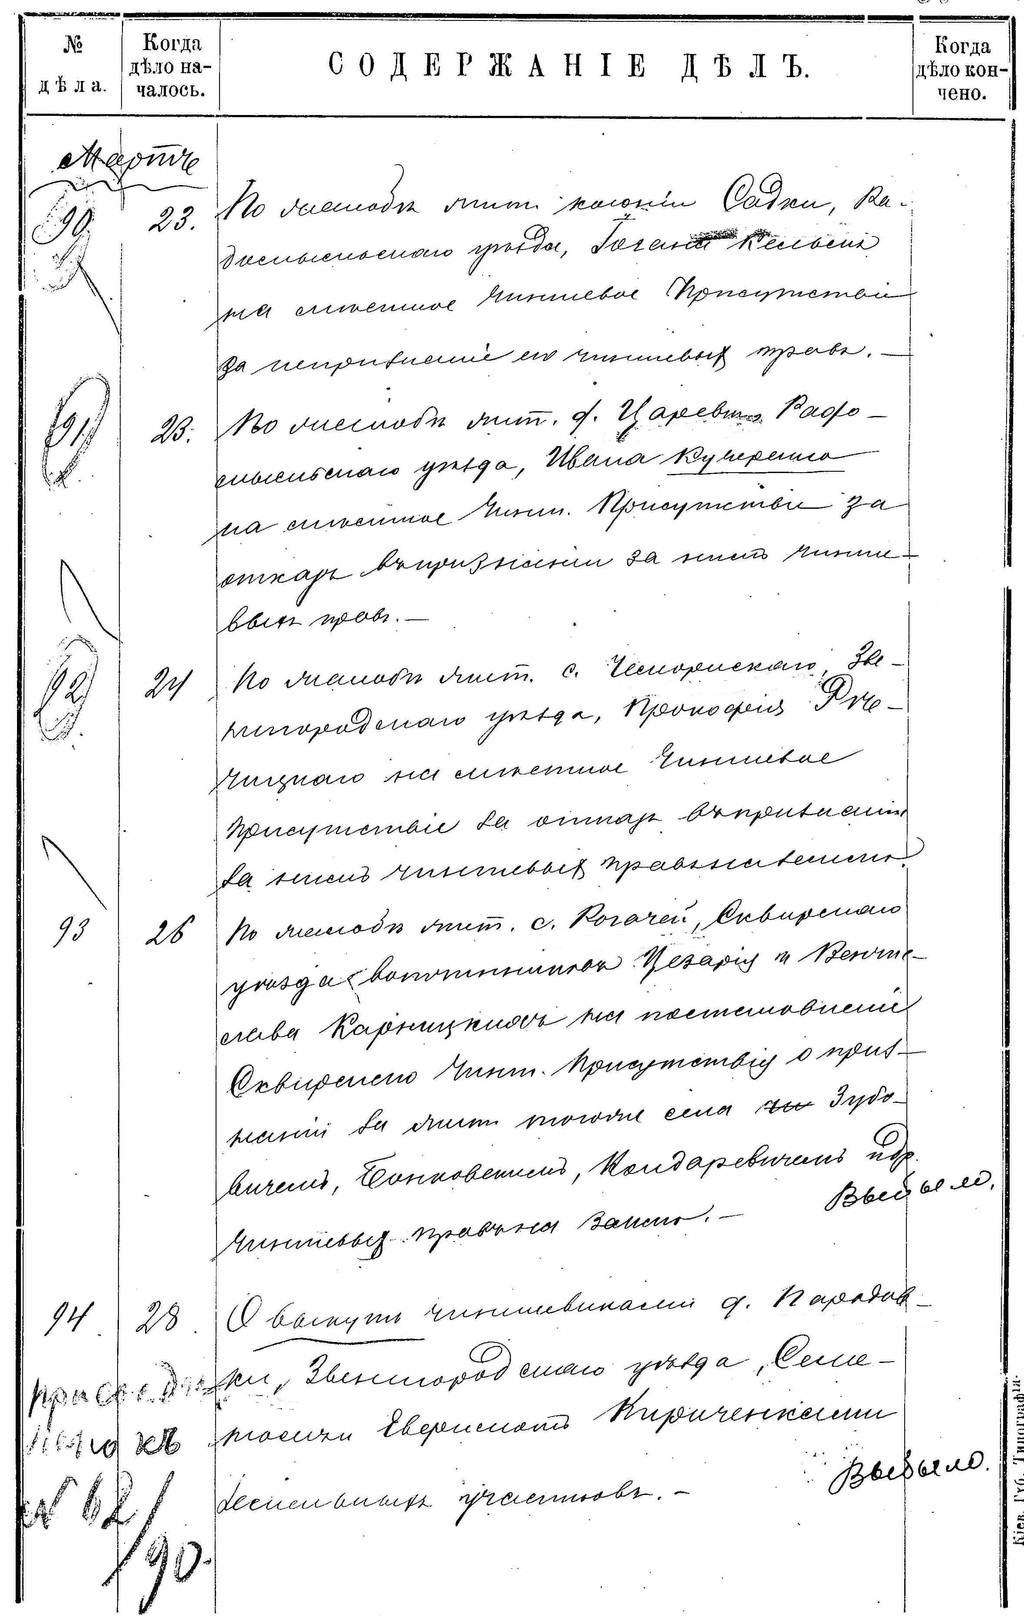 № дѣла.
Когда дѣло началось.
СОДЕРЖАНІЕ ДѢЛЪ.
Когда дѣло кончено.
Мартъ
90 23. По жалобѣ жит. колоніи Садки, Ра-
домысльскаго уѣзда,
на мѣстное Чиншевое Присутствіе
за непризнаніе его чиншевыхъ правъ. —
91 23. По жалобѣ жит. д. Царевка Радо-
мысльскаго уѣзда, Ивана Кучеренко
на мѣстное Чинш. Присутствіе за
отказъ въ признаніи за нимъ чинше-
выхъ правъ. —
92 24 По жалобѣ жит. с. Зве-
нигородскаго уѣзда, Прокофія Рче-
чицкаго на мѣстное Чиншевое
Присутствіе за отказъ въ признаніи
за нимъ чиншевыхъ правъ на землю.
93 26 По жалобѣ жит. с. Рогачей, Сквирскаго
уѣзда вотчинниковъ Цезарія и Венце-
слава Карницкихъ на постановленіе
Сквирскаго Чинш. Присутствія о приз-
наніи за жит. того же села Зубо-
вичемъ, Бонковскимъ, Кондаревичемъ и др.
чиншевыхъ правъ на землю. —
Выбыло.
94 28 О выкупѣ чиншевиками д. Пародов-
ки, Звенигородскаго уѣзда, Семе-
номъ и Кириченками
земельныхъ участковъ. —
Выбыло.
присоедин
ено къ
№ 62/
/90.
Кіев. Губ. Типографія